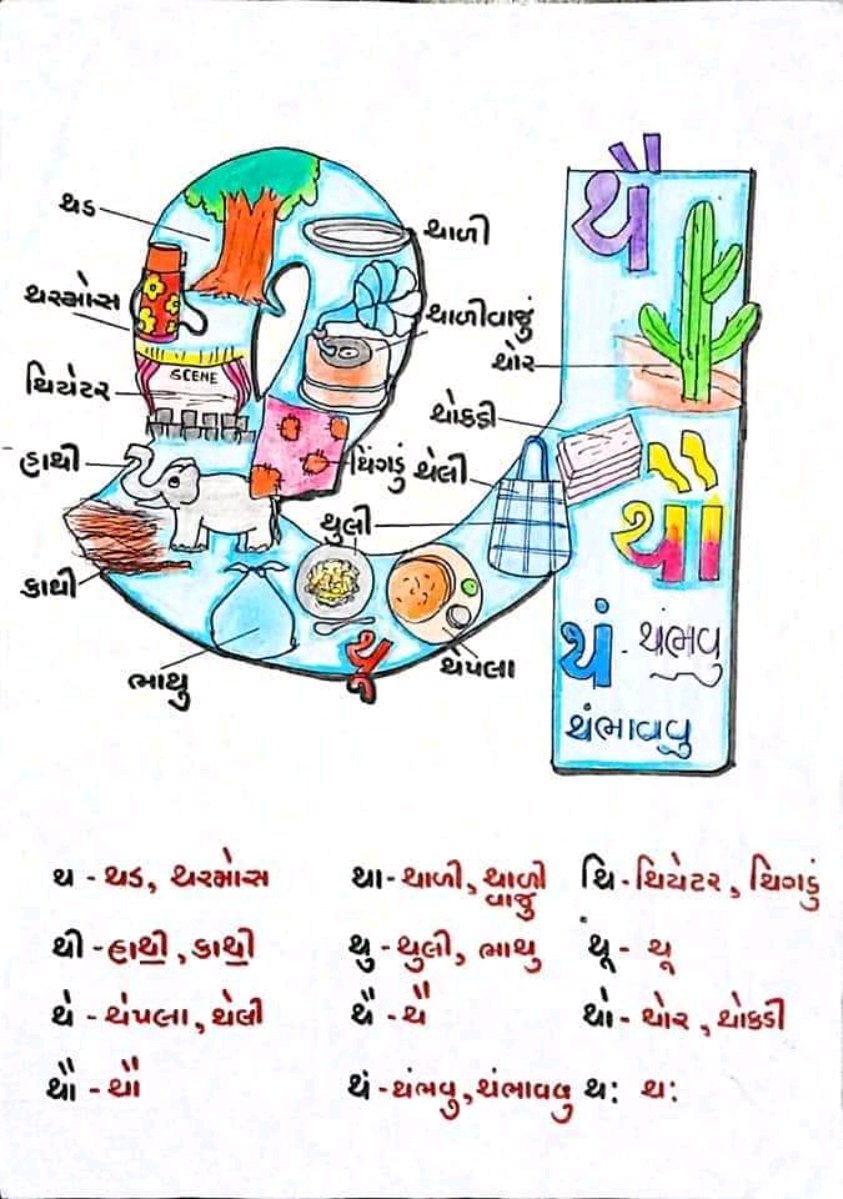 થૈ
થડ
થાળી
થરમોસ
થાળીવાજું
SCENE
થોર
થિયેટર
થોકડી
હાથી
થિંગડું
થેલી
થુલી
કાથી
થૌ
થૂ
ભાથુ
થેપલા
થં - થંભવુ
થંભાવવુ
થ - થડ, થરમોસ
થા - થાળી, થાળી વાજુ
થિ - થિયેટર, થિગડું
થી - હાથી, કાથી
થુ - થુલી, ભાથુ
થૂ - થૂ
થે - થેપલા, થેલી
થૈ - થૈ
થો - થોર, થોકડી
થૌ - થૌ
થં - થંભવુ, થંભાવવુ
થઃ થઃ